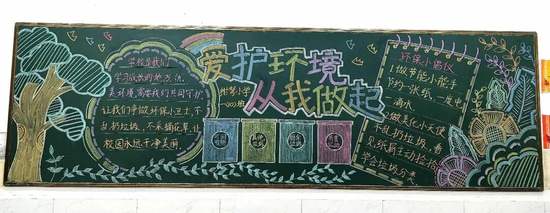 爱护环境
从我做起
学校是我们
学习成长的地方，优
美环境需要我们共同守护
让我们争做环保小卫士，不
乱扔垃圾，不采摘花草，让
校园永远干净美丽
环保小倡议
1.做节能小能手
节约一张纸、一度电
一滴水
2.做美化小天使
不乱扔垃圾，看
见纸屑主动捡拾
学会垃圾分类